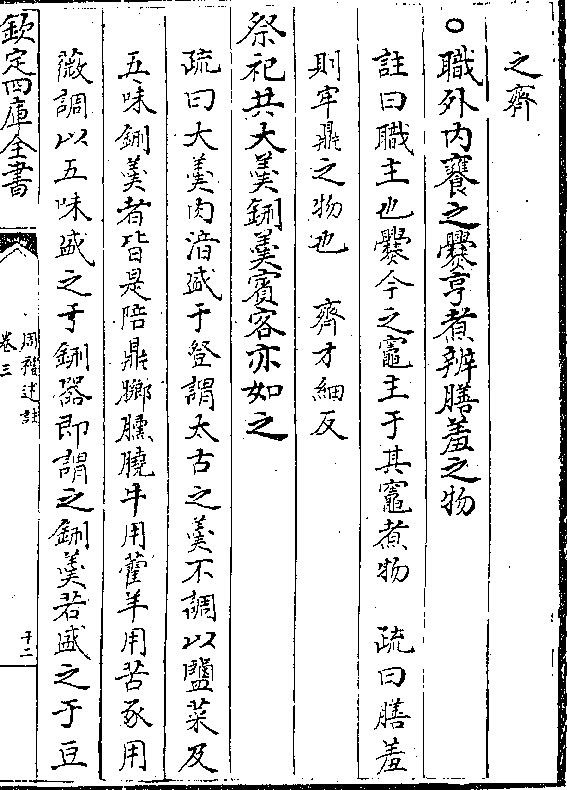 之齊
○職外内饔之爨亨煮辨膳羞之物
註曰職主也爨今之竈主于其竈煮物　疏曰膳羞
則牢鼎之物也　齊才細反
祭祀共大羮鉶羮賓客亦如之
疏曰大羮肉湆盛于登謂太古之羮不調以鹽菜及
五味鉶羮者皆是陪鼎膷臐膮牛用藿羊用苦豕用
薇調以五味盛之于鉶器即謂之鉶羮若盛之于豆
欽定四庫全書
周禮述註
卷三
十二